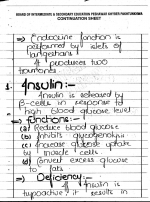 BOARD OF INTERMEDIATE & SECONDARY EDUCATION PESHAWAR KHYBER PAKHTUNKHWA
CONTINUATION SHEET
=> Endocrine function is
performed by islets of
Langerhans
It produces two
hormones
1. Insulin:-
Insulin is released by
β-cells in response to
high blood glucose level
=> Functions:-
(a) Reduce blood glucose
(b) Inhibits glycogenolysis
(c) Increase glucose uptake
by muscle cells.
(d) Convert excess glucose
to fats
=> Deficiency:-
If insulin is
hypoactive, it results in